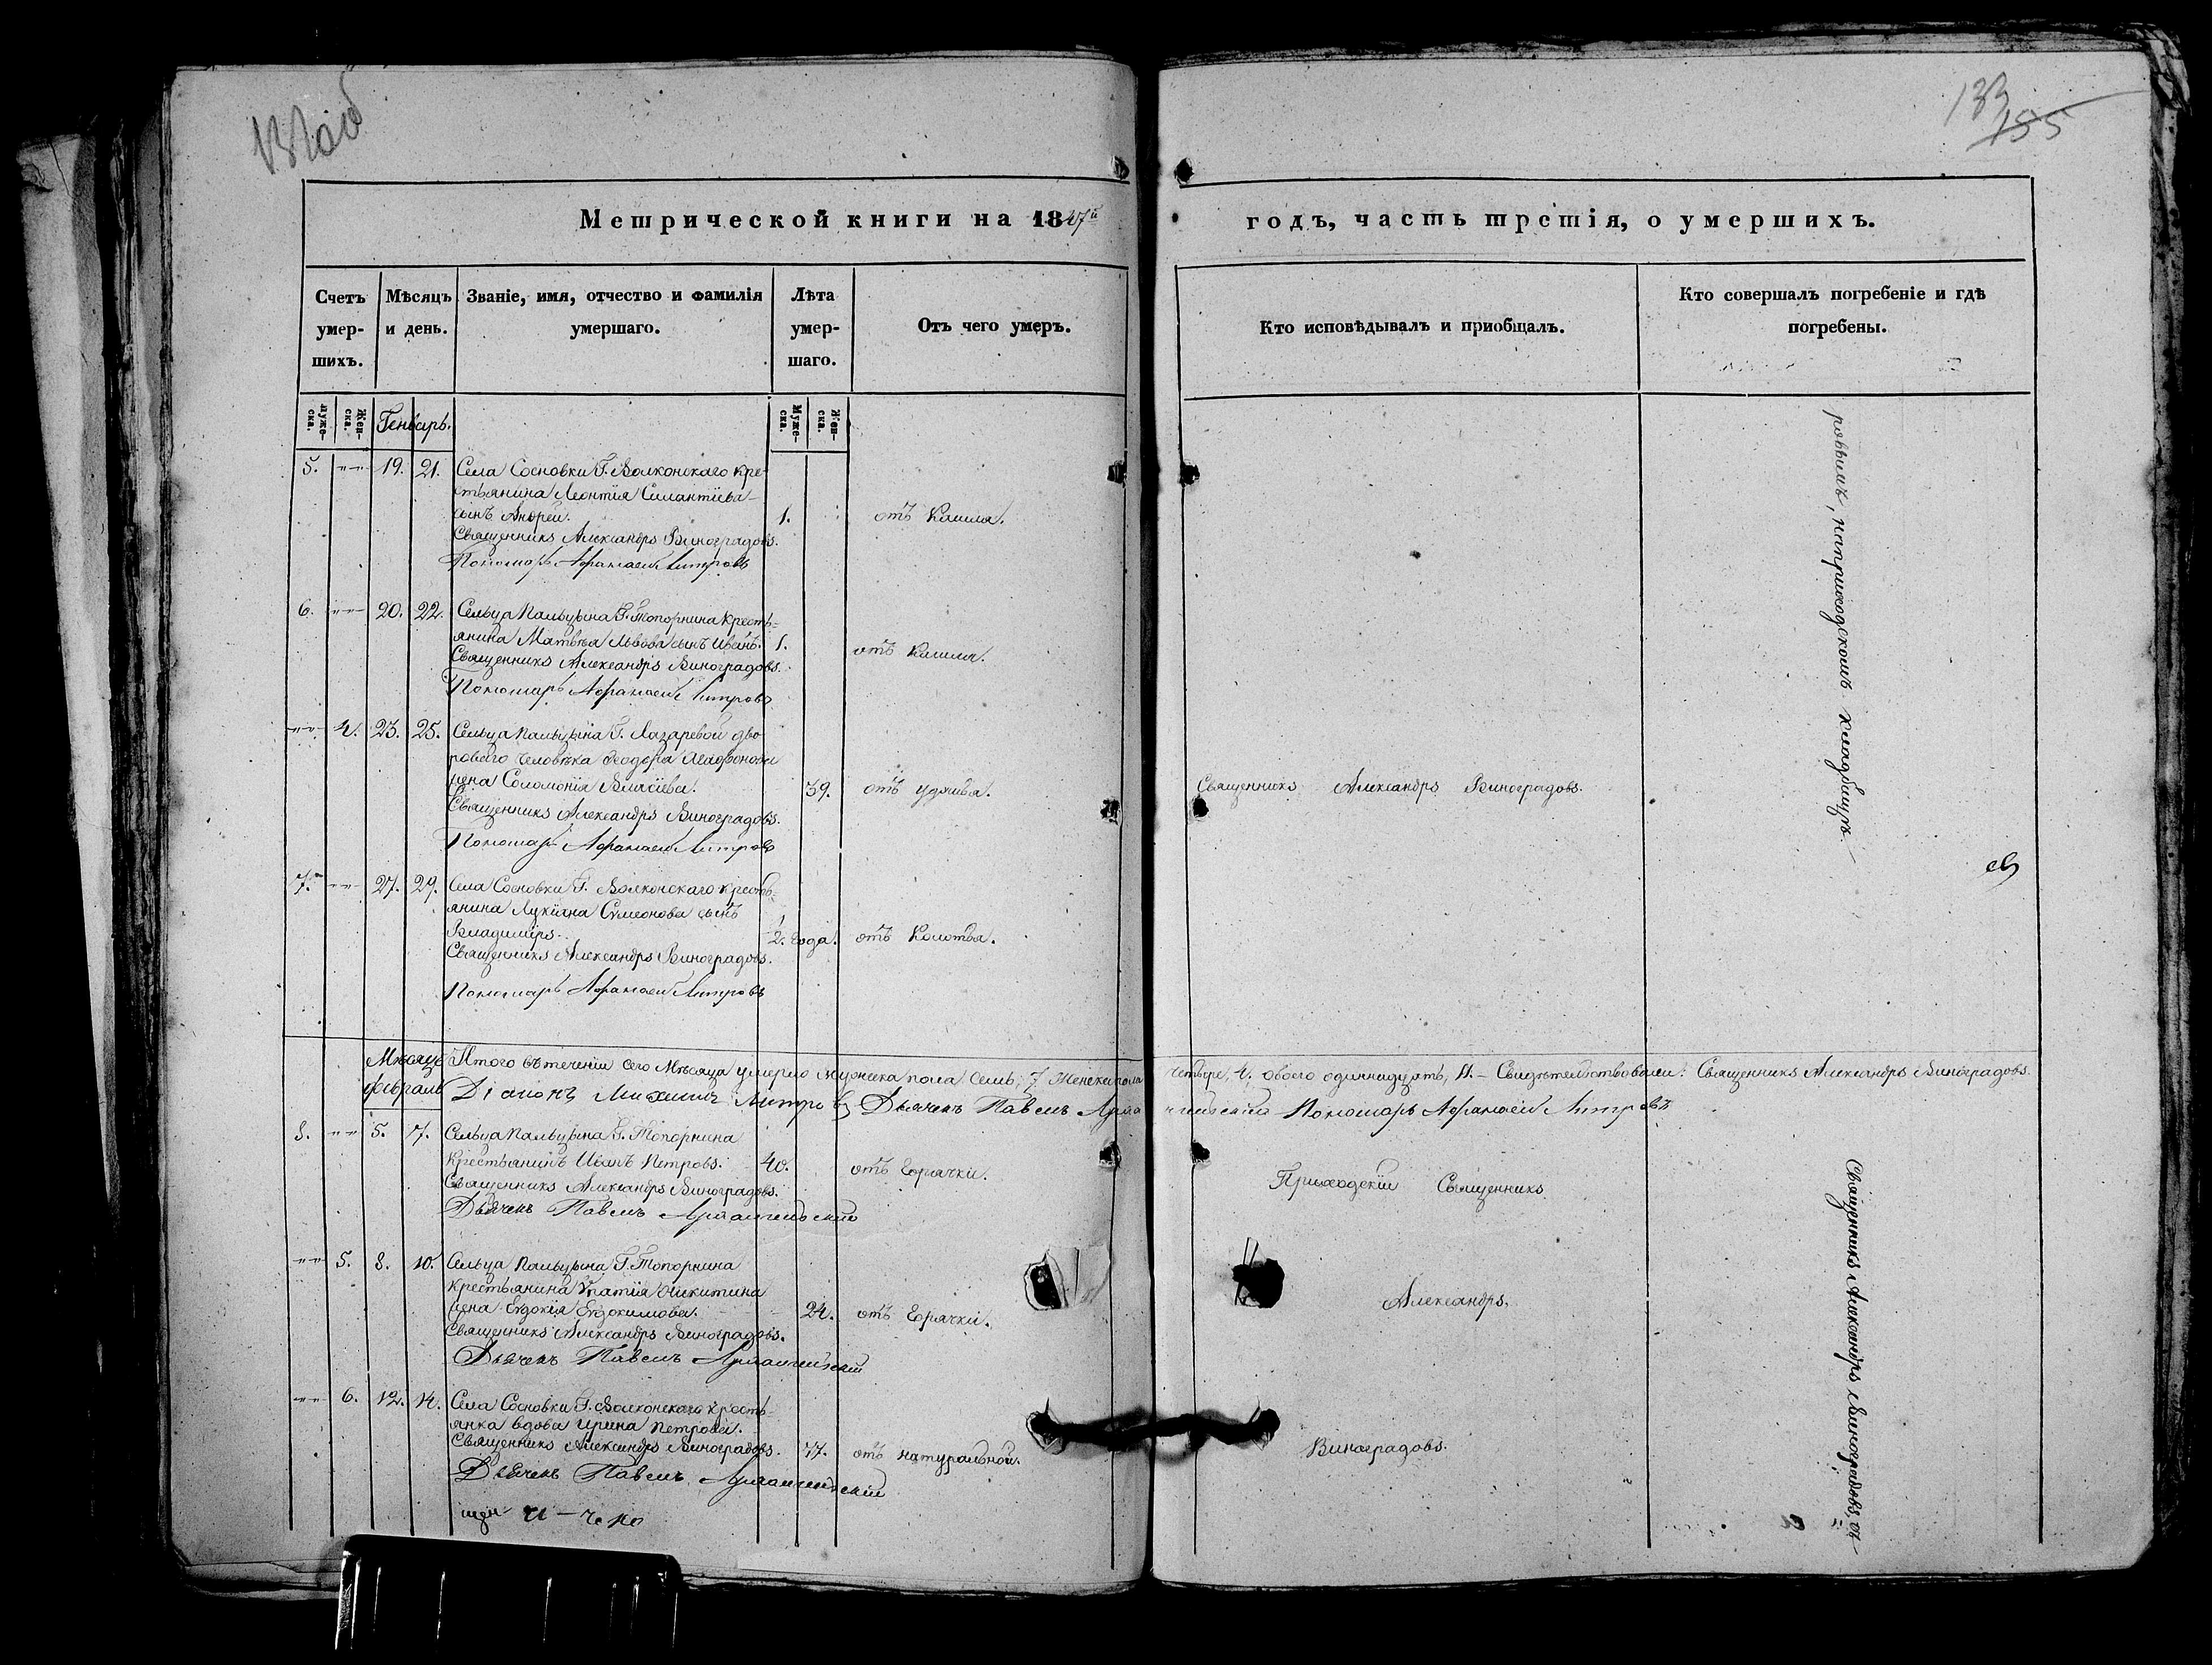 133
155
Метрической книги на 1847й
годъ, часть третія, о умершихъ.
Счетъ умер-шихъ.
Мѣсяцъ и день.
Званіе, имя, отчество и фамилія умершаго.
Лѣта умер-шаго.
Отъ чего умеръ.
Кто исповѣдывалъ и приобщалъ.
Кто совершалъ погребеніе и гдѣ погребены.
Муже-ска.
Жен-ска.
Генварь.
Муже-ска.
Жен-ска.
5. 19. 21. Села Сосновки Г. Волконскаго кре-
стьянина Леонтія Силантіева
сынъ Андрей. 1. отъ Кашля.
Священникъ Александръ Виноградовъ.
Пономарь Митровъ
6. 20. 22. Сельца Пальцына Г. Топорнина кресть-
янина Матвѣя Львова сынъ Иванъ. 1. отъ Кашля.
Священникъ Александръ Виноградовъ.
Пономарь Митровъ
4. 23. 25. Сельца Пальцына Г. Лазаревой дво-
роваго человѣка Ѳеодора
жена Соломонія Власіева. 39. отъ удушья.
Священникъ Александръ Виноградовъ.
Пономарь Митровъ
Священникъ Александръ Виноградовъ.
7. 27. 29. Села Сосновки Г. Волконскаго кресть-
янина Лукіана Симеонова сынъ
Владиміръ. 1/2. года. отъ Колотья.
Священникъ Александръ Виноградовъ.
Пономарь Митровъ
ровымъ, на приходскомъ кладбищѣ.
Мѣсяцъ Февраль
Итого въ теченіи сего Мѣсяца умерло мужеска пола семь, 7 Женска пола четыре, 4. обоего одиннадцать, 11. – Свидѣтельствовали: Священникъ Александръ Виноградовъ.
Діаконъ Михаилъ Митровъ Дьячекъ Павелъ Пономарь Митровъ
8. 5. 7. Сельца Пальцына Г. Топорнина
Крестьянинъ Иванъ Петровъ. 40. отъ Горячки.
Священникъ Александръ Виноградовъ.
Дьячекъ Павелъ
Приходскій Священникъ
5. 8. 10. Сельца Пальцына Г. Топорнина
крестьянина Ѵпатія Никитина
жена Евдокія Евдокимова. 24. отъ Горячки.
Священникъ Александръ Виноградовъ.
Дьячекъ Павелъ
Александръ.
6. 12. 14. Села Сосновки Г. Волконскаго кресть-
янка вдова Ирина Петрова.
Священникъ Александръ Виноградовъ. 77. отъ натуральной.
Дьячекъ Павелъ
Виноградовъ.
Священникъ Александръ Виноградовъ, съ